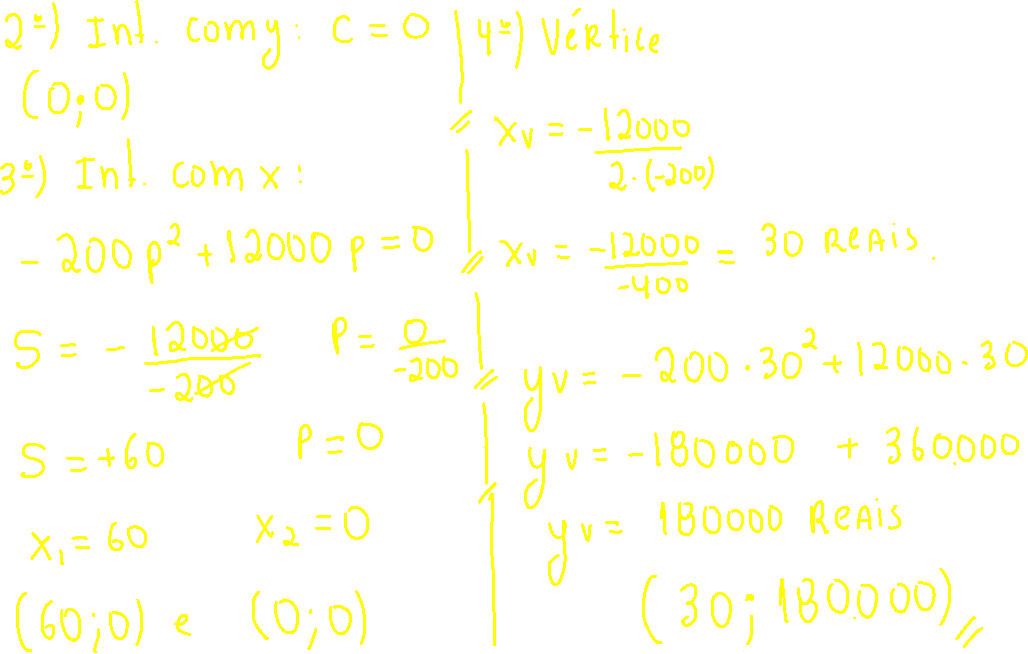 2ª) Int. com y: C = 0
(0;0)
3ª) Int. com x:
-200p² + 12000p = 0
S = -12000/-200 P = 0/-200
S = +60 P = 0
x₁ = 60 x₂ = 0
(60;0) e (0;0)
4ª) Vértice
Xv = -12000/2·(-200)
Xv = -12000/-400 = 30 REAis.
yv = -200·30² + 12000·30
yv = -180000 + 360.000
yv = 180000 REAis
(30; 180.000)